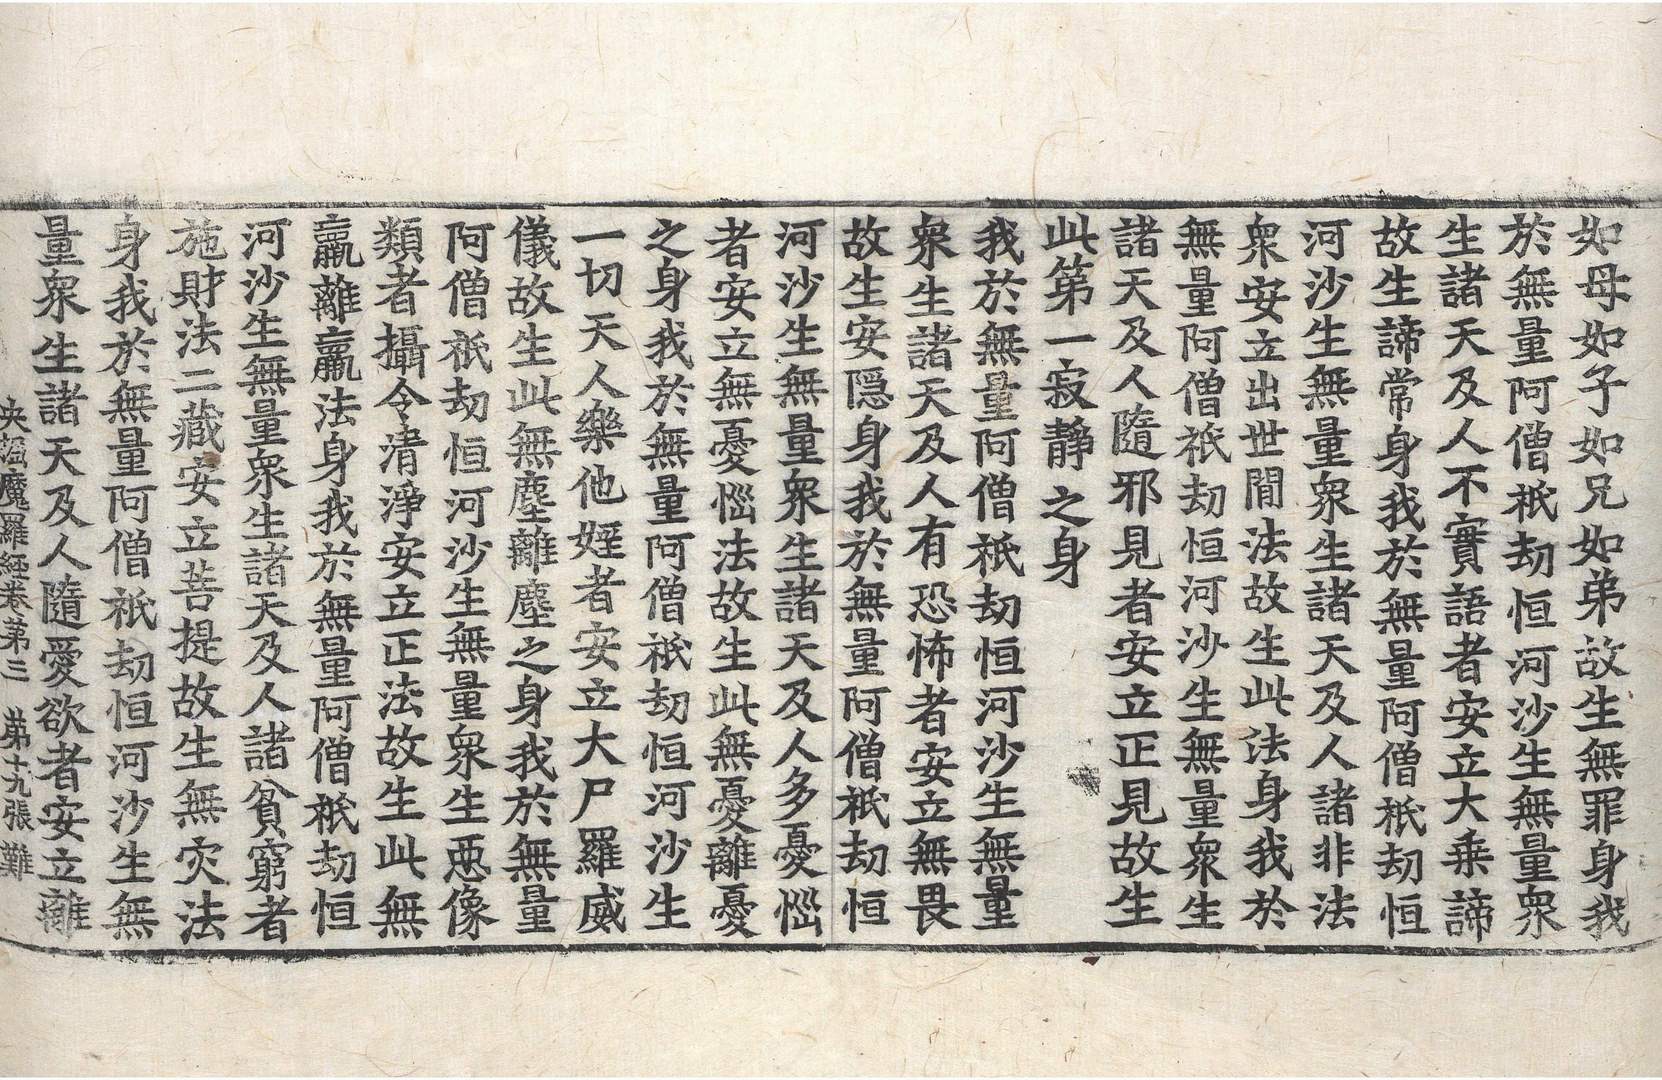 如母如子如兄如弟故生無罪身我
於無量阿僧祇劫恒河沙生無量衆
生諸天及人不實語者安立大乗諦
故生諦常身我於無量阿僧祇劫恒
河沙生無量衆生諸天及人諸非法
衆安立出世間法故生此法身我於
無量阿僧祇劫恒河沙生無量衆生
諸天及人隨邪見者安立正見故生
此第一寂靜之身
我於無量阿僧祇劫恒河沙生無量
衆生諸天及人有恐怖者安立無畏
故生安隠身我於無量阿僧祇劫恒
河沙生無量衆生諸天及人多憂惱
者安立無憂惱法故生此無憂離憂
之身我於無量阿僧祇劫恒河沙生
一切天人樂他婬者安立大尸羅威
儀故生此無塵離塵之身我於無量
阿僧祇劫恒河沙生無量衆生惡像
類者攝令清淨安立正法故生此無
羸離羸法身我於無量阿僧祇劫恒
河沙生無量衆生諸天及人諸貧窮者
施財法二藏安立菩提故生無灾法
身我於無量阿僧祇劫恒河沙生無
量衆生諸天及人隨愛欲者安立離
央掘魔羅經卷第三 第十九張 難